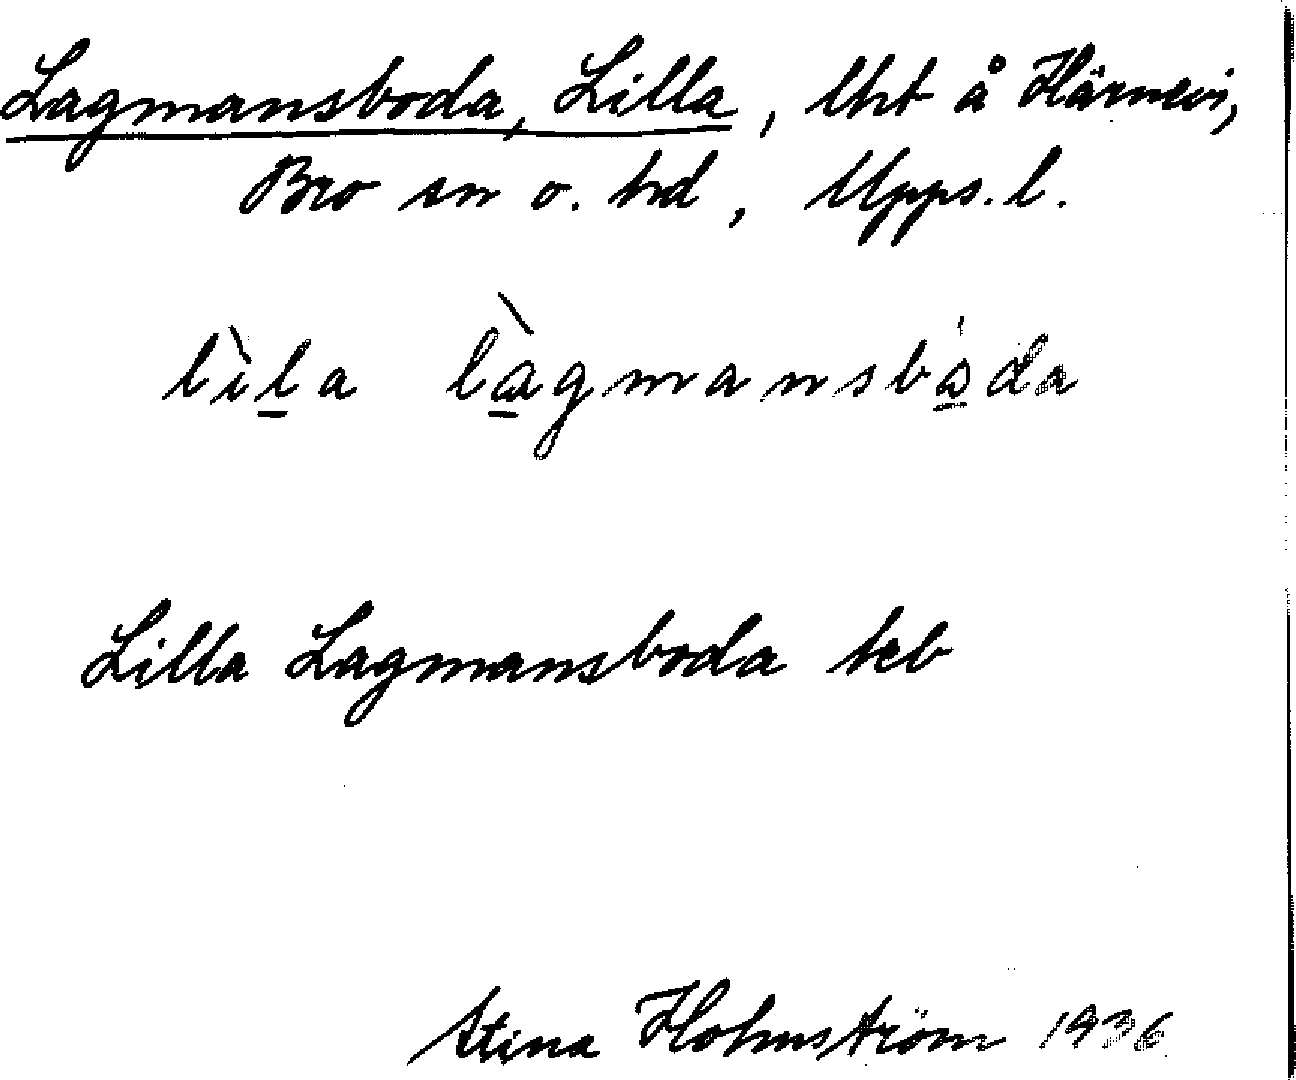 Lagmansboda, Lilla, lht å Härnevi,
Bro sn o. hd, Upps. l.
lìl̲a là̲gmansbå̲da
Lilla Lagmansboda teb
Stina Holmström 1936